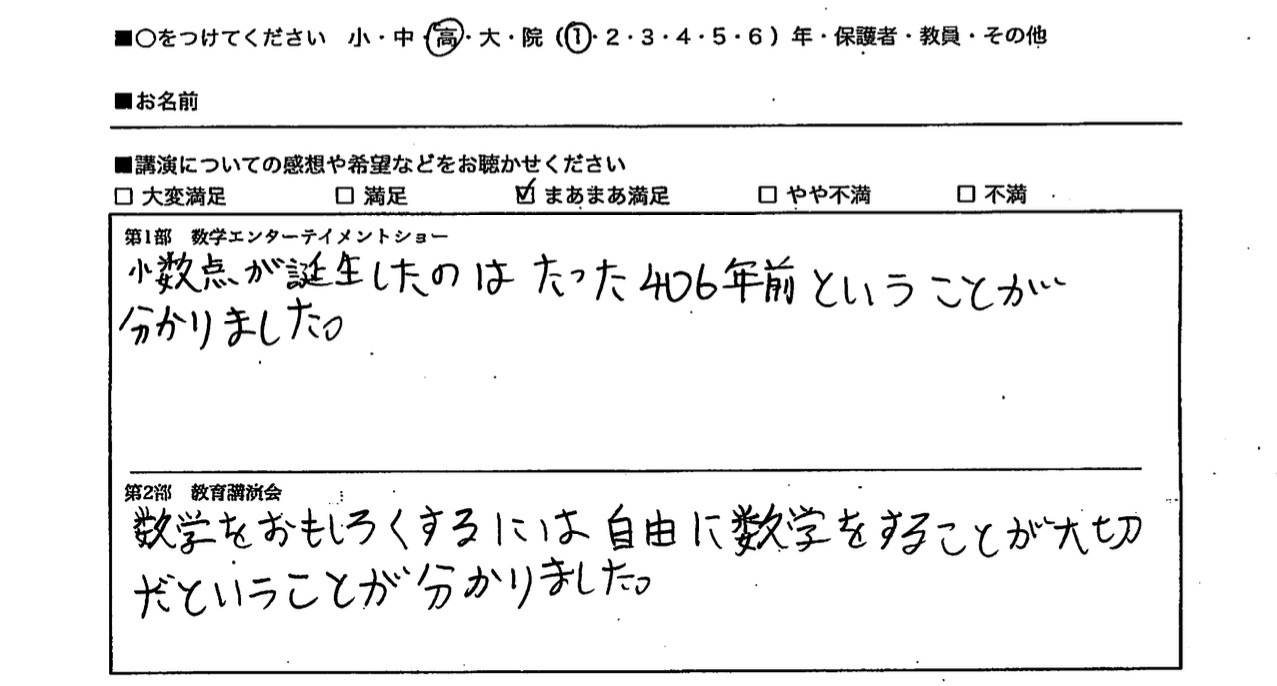 ■○をつけてください 小・中・高・大・院（1・2・3・4・5・6）年・保護者・教員・その他
■お名前
■講演についての感想や希望などをお聴かせください
□ 大変満足 □ 満足 ☑ まあまあ満足 □ やや不満 □ 不満
第1部 数学エンターテイメントショー
小数点が誕生したのはたった406年前ということが
分かりました。
第2部 教育講演会
数学をおもしろくするには自由に数学をすることが大切
だということが分かりました。